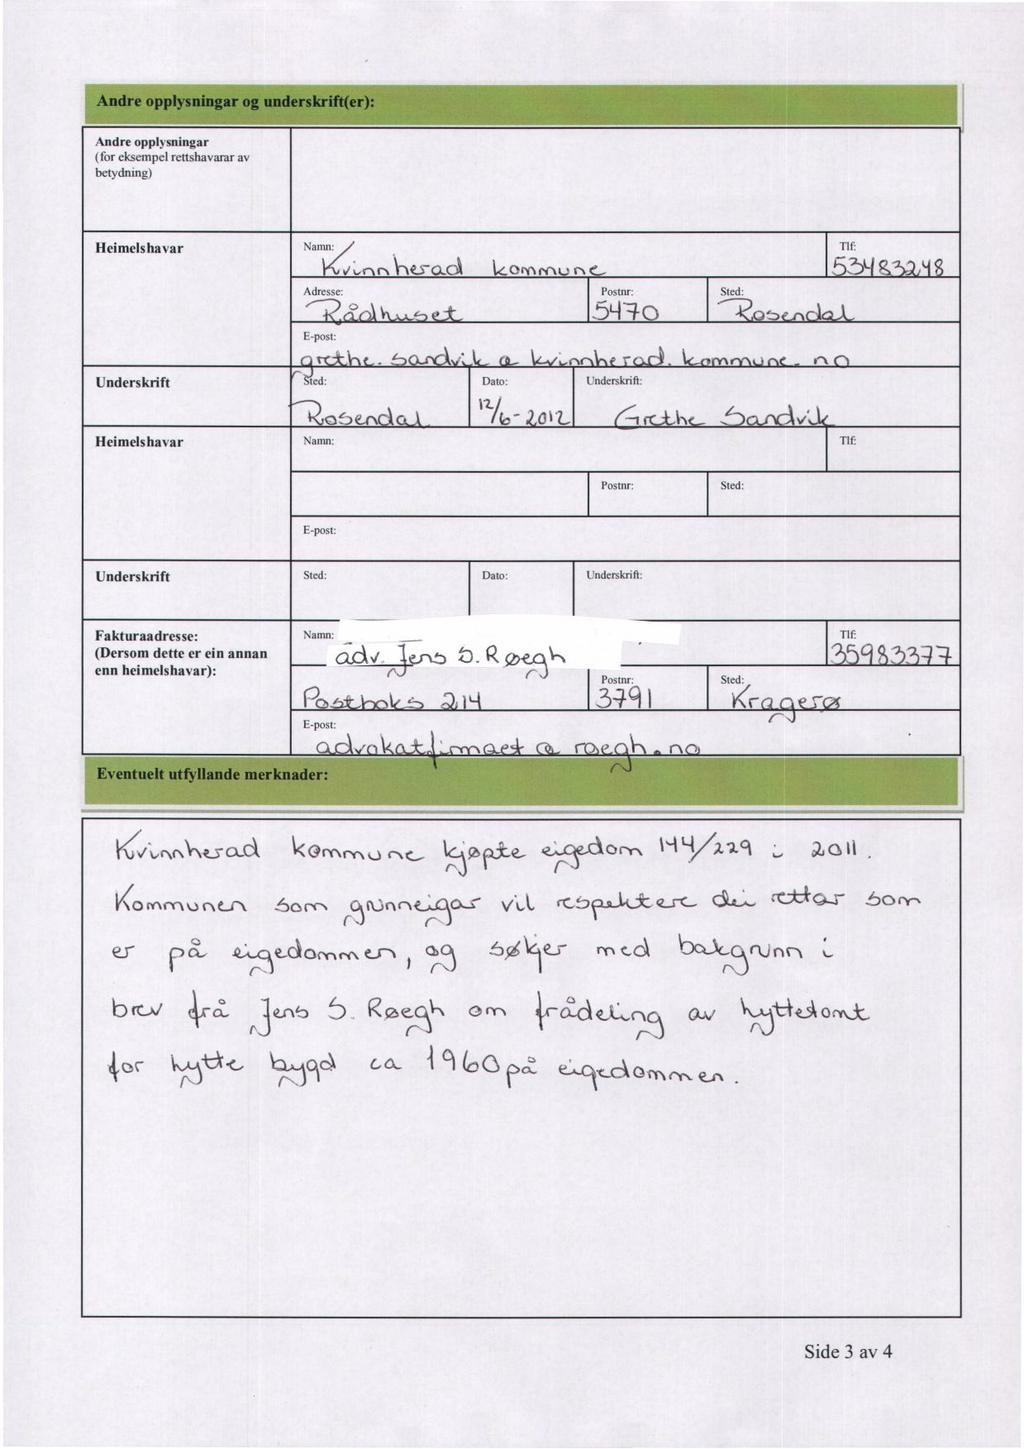 Andre opplysningar og underskrift(er):
Andre opplysningar
(for eksempel rettshavarar av
betydning)
Heimelshavar
Namn:
Kvinnherad kommune
Tlf:
53483248
Adresse:
Rådhuset
Postnr:
5470
Sted:
Rosendal
E-post:
grethe.sandvik@kvinnherad.kommune.no
Underskrift
Sted:
Rosendal
Dato:
12/6-2012
Underskrift:
Grethe Sandvik
Heimelshavar
Namn:
Tlf:
Postnr:
Sted:
E-post:
Underskrift
Sted:
Dato:
Underskrift:
Fakturaadresse:
(Dersom dette er ein annan
enn heimelshavar):
Namn:
adv. Jens S. Røegh
Tlf:
35983377
Postboks 214
Postnr:
3791
Sted:
Kragerø
E-post:
advokatfirmaet@roegh.no
Eventuelt utfyllande merknader:
Kvinnherad kommune kjøpte eigedom 144/229 i 2011.
Kommunen som grunneigar vil respektere dei rettar som
er på eigedommen, og søkjer med bakgrunn i
brev frå Jens S. Røegh om frådeling av hyttetomt
for hytte bygd ca 1960 på eigedommen.
Side 3 av 4